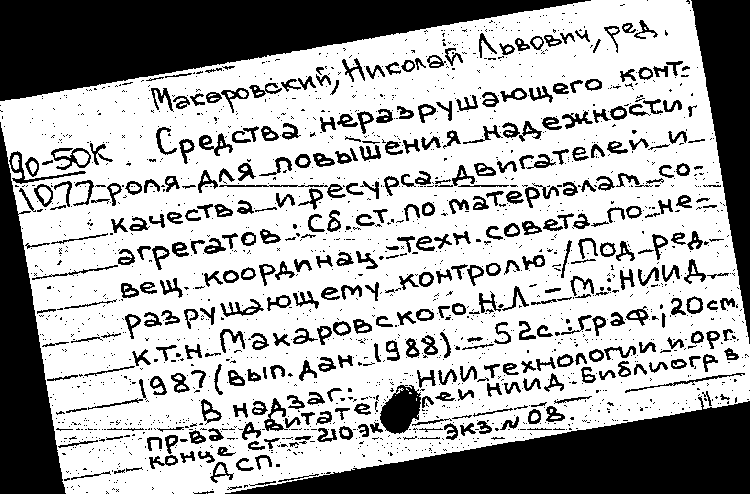 Макаровский, Николай Львович, ред.
90-50К
1077
Средства неразрушающего конт-
роля для повышения надежности,
качества и ресурса двигателей и
агрегатов : Сб. ст. по материалам со-
вещ. координац.-техн. совета по не-
разрушающему контролю / Под ред.
к.т.н. Макаровского Н.Л. – М. : НИИД
1987 (вып. дан. 1988). – 52 с. : граф. ; 20 см
В надзаг.: НИИ технологии и орг.
пр-ва двигателей НИИД. Библиогр в
конце ст. – 210 эк экз. N 08.
ДСП.